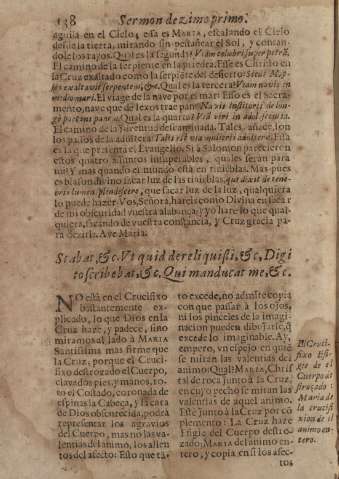 138 Sermon dezimo primo.
aguila en el Cielo, esa es MARIA, escalando el Cielo
desde la tierra, mirando sin pestañear el Sol, y contan-
dole los rayos. Qual es la segunda? Viam colubri super petrã.
El camino de la serpiente en la piedra. Esse es Christo en
la Cruz exaltado como la serpiẽte del desierto: Sicut Moy-
ses exaltavit serpentem, &c. Qual es la tercera? Viam navis in
medio mari. El viage de la nave por el mar: Esso es el Sacra-
mento, nave que de lexos trae pan: Navis institoris de lon-
gè portans panẽ. Qual es la quarta? Viã viri in adolescentia.
los passos de la adultera: Talis est via mulieris adulteræ. Essa
es la que presenta el Evangelio. Si à Salomon parecieron
estos quatro assuntos insuperables, quales serán para
mi? y mas quando el mundo està en tinieblas. Mas pues
es blason divino sacar luz de las tinieblas, qui dixit de tene-
bris lucem splendescere, que sacar luz de la luz, qualquiera
lo puede hazer. Vos, Señora, hareis como Divina en sacar
de mi obscuridad vuestra alabança, y yo harè lo que qual-
quiera, sacando de vuestra constancia, y Cruz gracia pa-
ra dezirla. Ave Maria.
Stabat, &c. Vt quid dereliquisti, &c, Digi
to scribebat, &c. Qui manducat me, &c.
NO està en el Crucifixo
bastantemente ex-
plicado, lo que Dios en la
Cruz haze, y padece, sino
miramos al lado à MARIA
Santissima mas firme que
la Cruz, porque si el Cruci-
fixo destrozado el Cuerpo,
clavados pies, y manos, ro-
to el Costado, coronada de
espinas la Cabeça, y la cara
de Dios obscurecida, podrà
representar los agravios
del Cuerpo, mas no las va-
lentias del animo, los alien-
tos del afecto: Esto que tã-
to excede, no admite copia
con que passar à los ojos,
ni los pinceles de la imagi-
nacion pueden dibujarse, q̃
excede lo imaginable. Ay,
empero, vn espejo en que
se miran las valentias del
animo: Qual? MARIA, Chris-
tal de roca junto à la Cruz,
en cuyo pecho se miran las
valencias de aquel animo.
Este junto à la Cruz por cõ-
plemento: La Cruz haze
Efigie del Cuerpo destro-
zado; MARIA del animo en-
tero, y copia en si los afec-
tos
El Cruci-
fixo Efi-
gie de el
Cuerpo de
struçado:
Maria de
la crucifi-
xion de el
animo en-
tero.